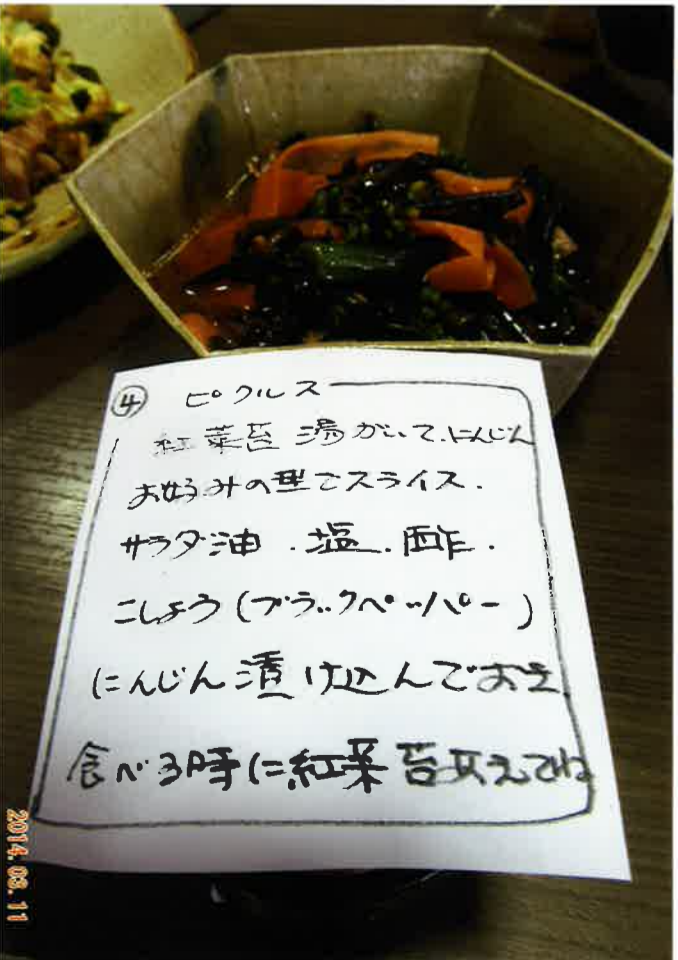 ④ ピクルス
紅菜苔 湯がいて.にんじん
お好みの型でスライス.
サラダ油 . 塩. 酢.
こしょう(ブラックペッパー)
にんじん漬け込んでおき.
食べる時に紅菜苔 えてね
2014.03.11